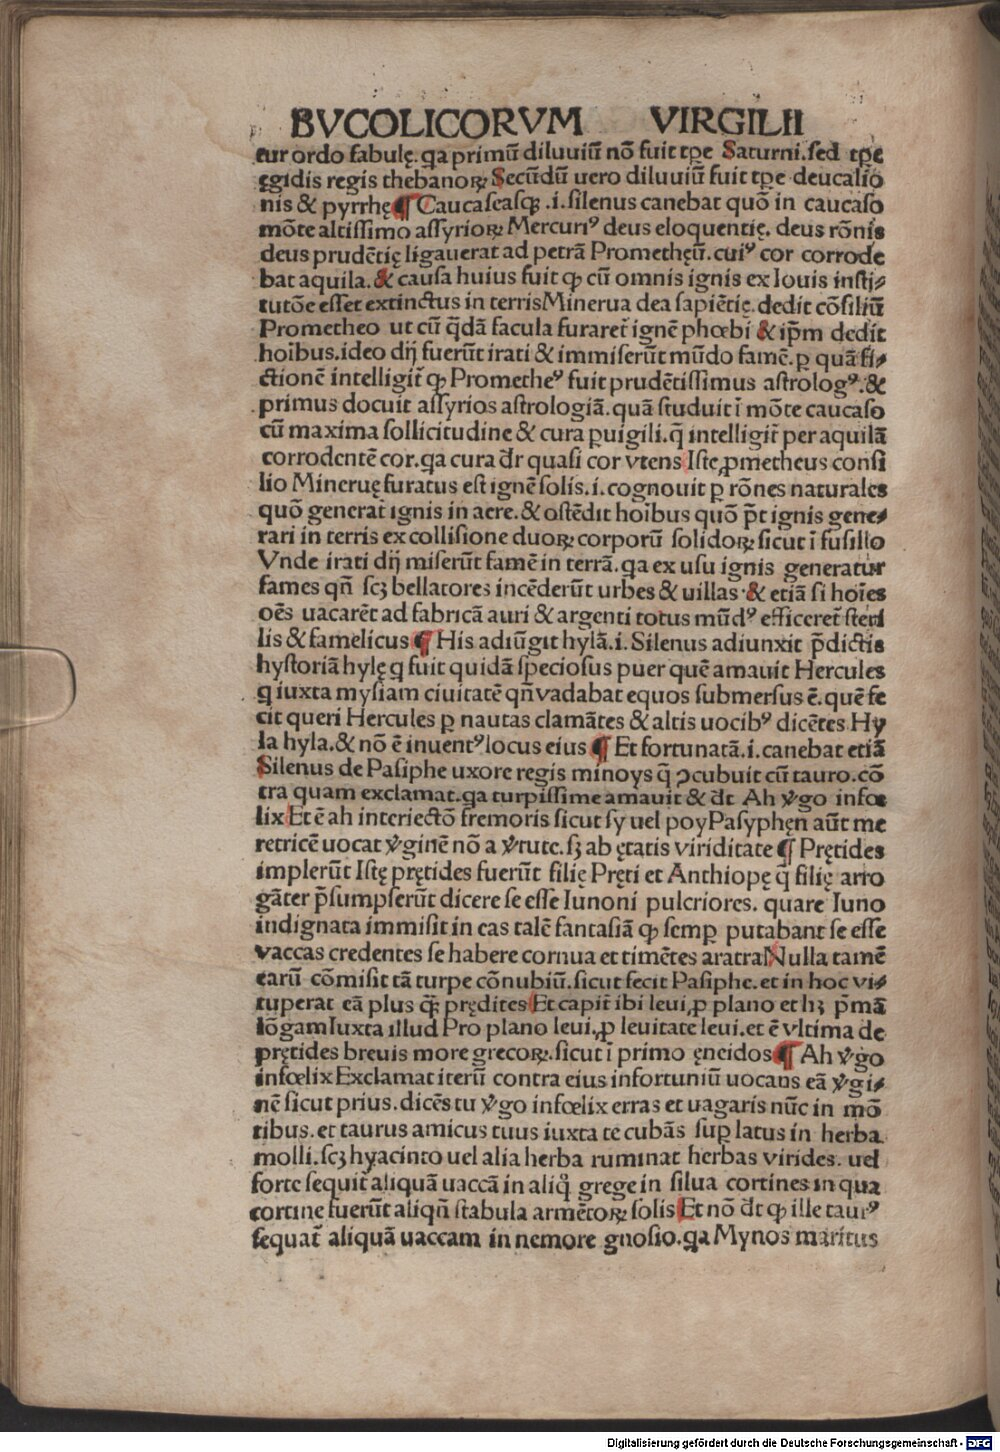 BVCOLICORVM VIRGILII
tur ordo fabulę. qa primū diluuiū nō fuit tp̄e Saturni. sed tp̄e
ęgidis regis thebanoꝝ Secūdū uero diluuiū fuit tp̄e deucalio
nis & pyrrhę ¶ Caucaseasqꝫ .i. silenus canebat quō in caucaso
mōte altissimo assyrioꝝ Mercuriꝰ deus eloquentię. deus rōnis
deus prudētię ligauerat ad petrā Promethęū. cuiꝰ cor corrode
bat aquila. & causa huius fuit ꝙ cū omnis ignis ex Iouis insti⸗
tutōe esset extinctus in terris Minerua dea sapiētię. dedit cōsiliū
Prometheo ut cū q̄dā facula furaret᷑ ignē phœbi & ip̄m dedit
hoībus. ideo dij fuerūt irati & immiserūt mūdo famē. ꝑ quā fi⸗
ctionē intelligit᷑ ꝙ Prometheꝰ fuit prudētissimus astrologꝰ. &
primus docuit assyrios astrologiā. quā studuit ī mōte caucaso
cū maxima sollicitudine & cura ꝑuigili. q̄ intelligit᷑ per aquilā
corrodentē cor. qa cura dr̄ quasi cor vtens Iste ꝓmetheus consi
lio Mineruę furatus est ignē solis. i. cognouit ꝑ rōnes naturales
quō generat᷑ ignis in aere. & ostēdit hoībus quō p̄t ignis gene⸗
rari in terris ex collisione duoꝝ corporū solidoꝝ sicut ī fusillo
Vnde irati dij miserūt famē in terrā. qa ex usu ignis generatur
fames qn̄ scꝫ bellatores incēderūt urbes & uillas. & etiā si hoīes
oēs uacarēt ad fabricā auri & argenti totus mūdꝰ efficeret᷑ steri
lis & famelicus ¶ His adiūgit hylā. i. Silenus adiunxit p̄dictis
hystoriā hylę q fuit quidā speciosus puer quē amauit Hercules
q iuxta mysiam ciuitatē qn̄ vadabat equos submersus ē. quē fe
cit queri Hercules ꝑ nautas clamātes & altis uocibꝰ dicētes Hy
la hyla. & nō ē inuentꝰ locus eius ¶ Et fortunatā. i. canebat etiā
Silenus de Pasiphe uxore regis minoys q̄ ꝯcubuit cū tauro. cō
tra quam exclamat. qa turpissime amauit & dt̄ Ah v̓go infœ
lix Et ē ah interiectō fremoris sicut sy uel poy Pasyphęn aūt me
retricē uocat v̓ginē nō a v̓tute. sꝫ ab ętatis viriditate ¶ Prętides
implerūt Istę prętides fuerūt filię Pręti et Anthiopę q̄ filię arro
gāter p̄sumpserūt dicere se esse Iunoni pulcriores. quare Iuno
indignata immisit in eas talē fantasiā ꝙ semꝑ putabant se esse
vaccas credentes se habere cornua et timētes aratra Nulla tamē
earū cōmisit tā turpe cōnubiū. sicut fecit Pasiphe. et in hoc vi⸗
tuperat eā plus q̄ꝫ prędites Et capit᷑ ibi leui, ꝓ plano et hꝫ p̄mā
lōgam Iuxta illud Pro plano leui, ꝓ leuitate leui. et ē vltima de
prętides breuis more grecoꝝ. sicut ī primo ęneidos ¶ Ah v̓go
infœlix Exclamat iterū contra eius infortuniū uocans eā v̓gi⸗
nē sicut prius. dicēs tu v̓go infœlix erras et uagaris nūc in mō
tibus. et taurus amicus tuus iuxta te cubās suꝑ latus in herba
molli. scꝫ hyacinto uel alia herba ruminat herbas virides. uel
forte sequit᷑ aliquā uaccā in aliq̓ grege in silua cortines in qua
cortine fuerūt aliqn̄ stabula armētoꝝ solis Et nō dt̄ ꝙ ille taurꝰ
sequat᷑ aliquā uaccam in nemore gnosio. qa Mynos maritus
Digitalisierung gefördert durch die Deutsche Forschungsgemeinschaft - DFG